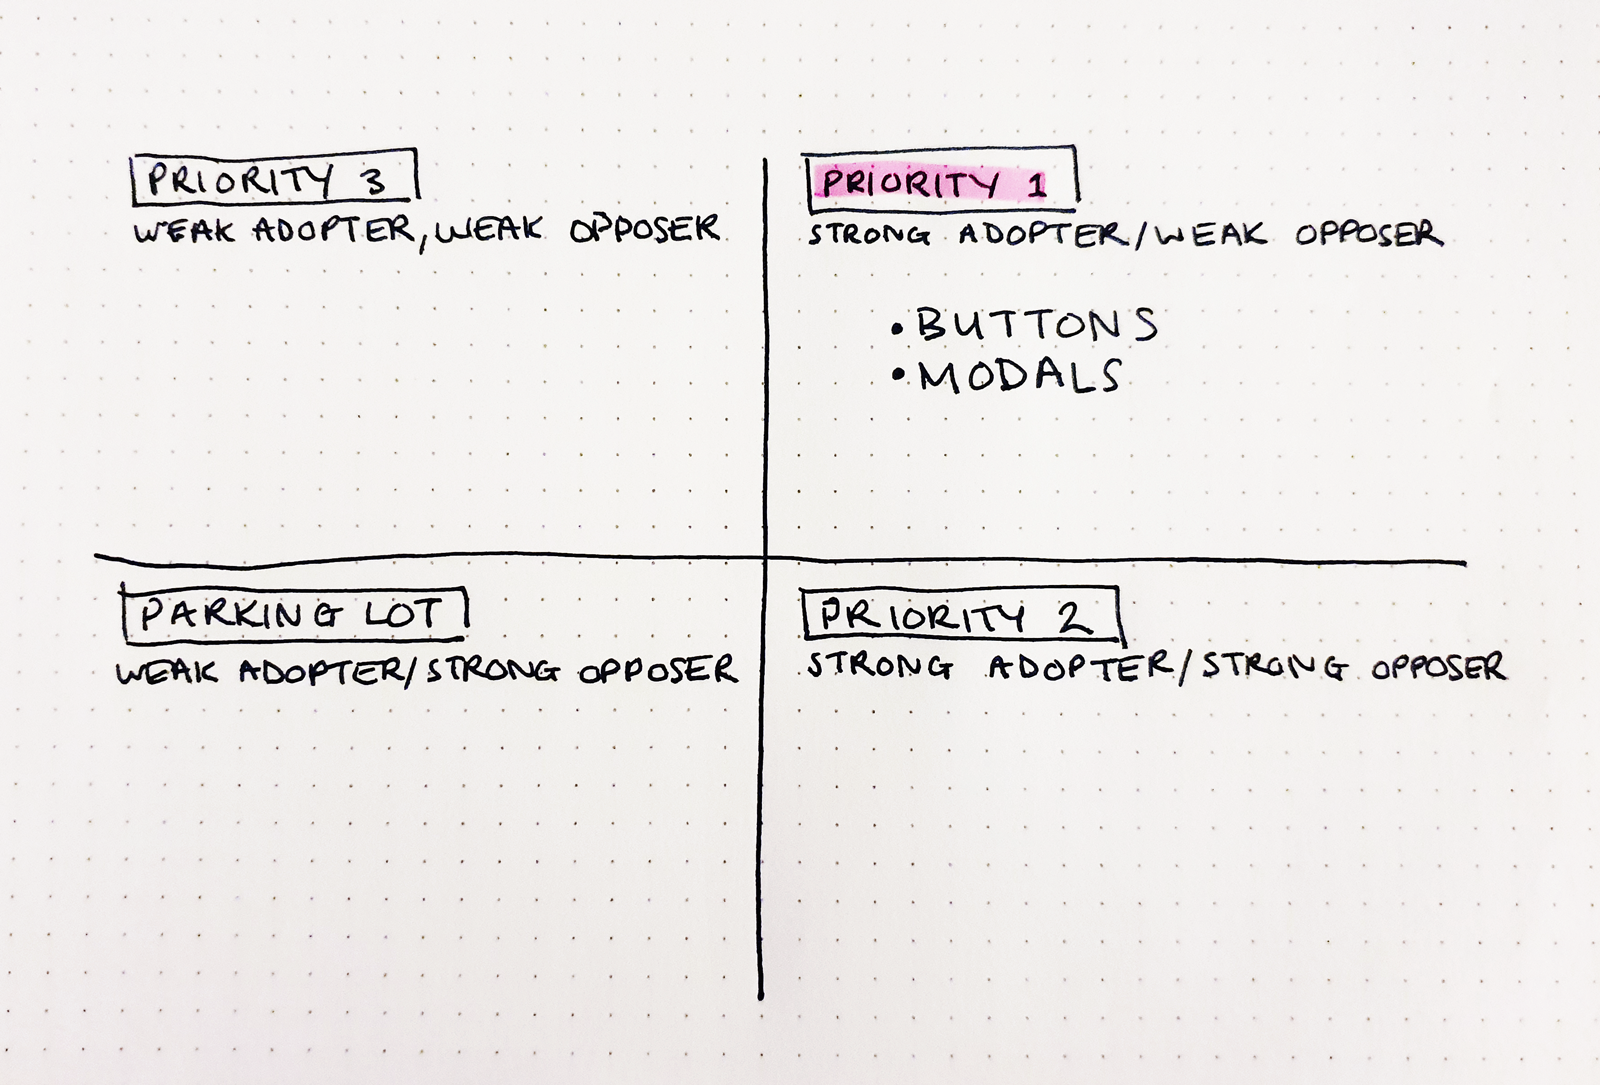 PRIORITY 3
WEAK ADOPTER, WEAK OPPOSER
PRIORITY 1
STRONG ADOPTER/WEAK OPPOSER
• BUTTONS
• MODALS
PARKING LOT
WEAK ADOPTER/STRONG OPPOSER
PRIORITY 2
STRONG ADOPTER/STRONG OPPOSER